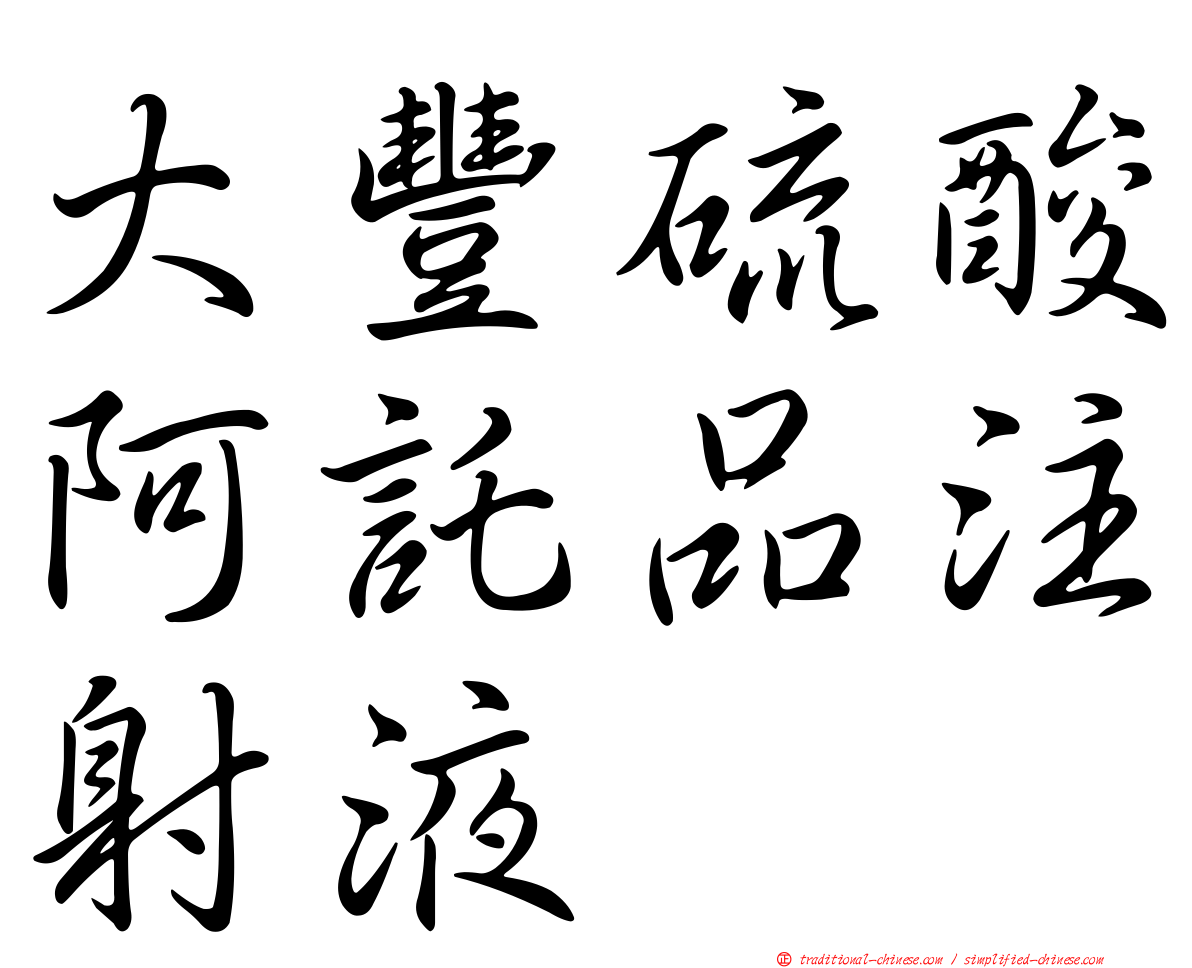 大豐硫酸
阿託品注
射液
正 traditional-chinese.com / simplified-chinese.com